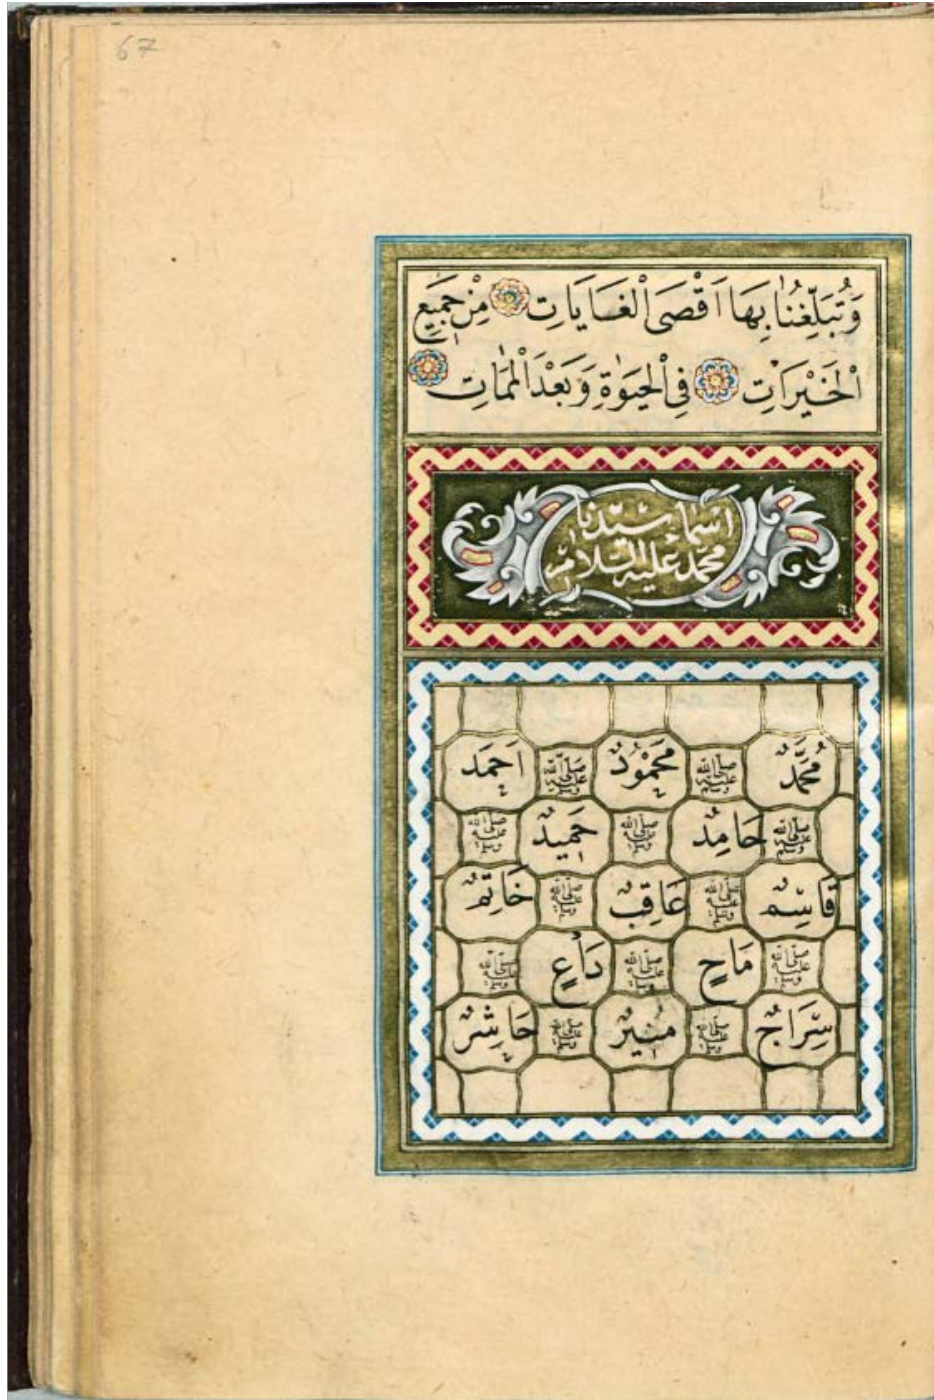 67
وَتُبَلِّغُنَا بِهَا اَقْصَى الْغَايَاتِ مِنْ جَمِيعِ
الْخَيْرَاتِ فِى الْحَيٰوةِ وَبَعْدَ الْمَمَاتِ
اسماء سيّدنا
محمّد عليه السلام
مُحَمَّدٌ صلى الله عليه وسلم مَحْمُودٌ صلى الله عليه وسلم اَحْمَد
صلى الله عليه وسلم حَامِدٌ صلى الله عليه وسلم حَمِيدٌ صلى الله عليه وسلم
قَاسِمٌ صلى الله عليه وسلم عَاقِبٌ صلى الله عليه وسلم خَاتِمٌ
صلى الله عليه وسلم مَاحٍ صلى الله عليه وسلم دَاعٍ صلى الله عليه وسلم
سِرَاجٌ صلى الله عليه وسلم مُنِيرٌ صلى الله عليه وسلم حَاشِرٌ